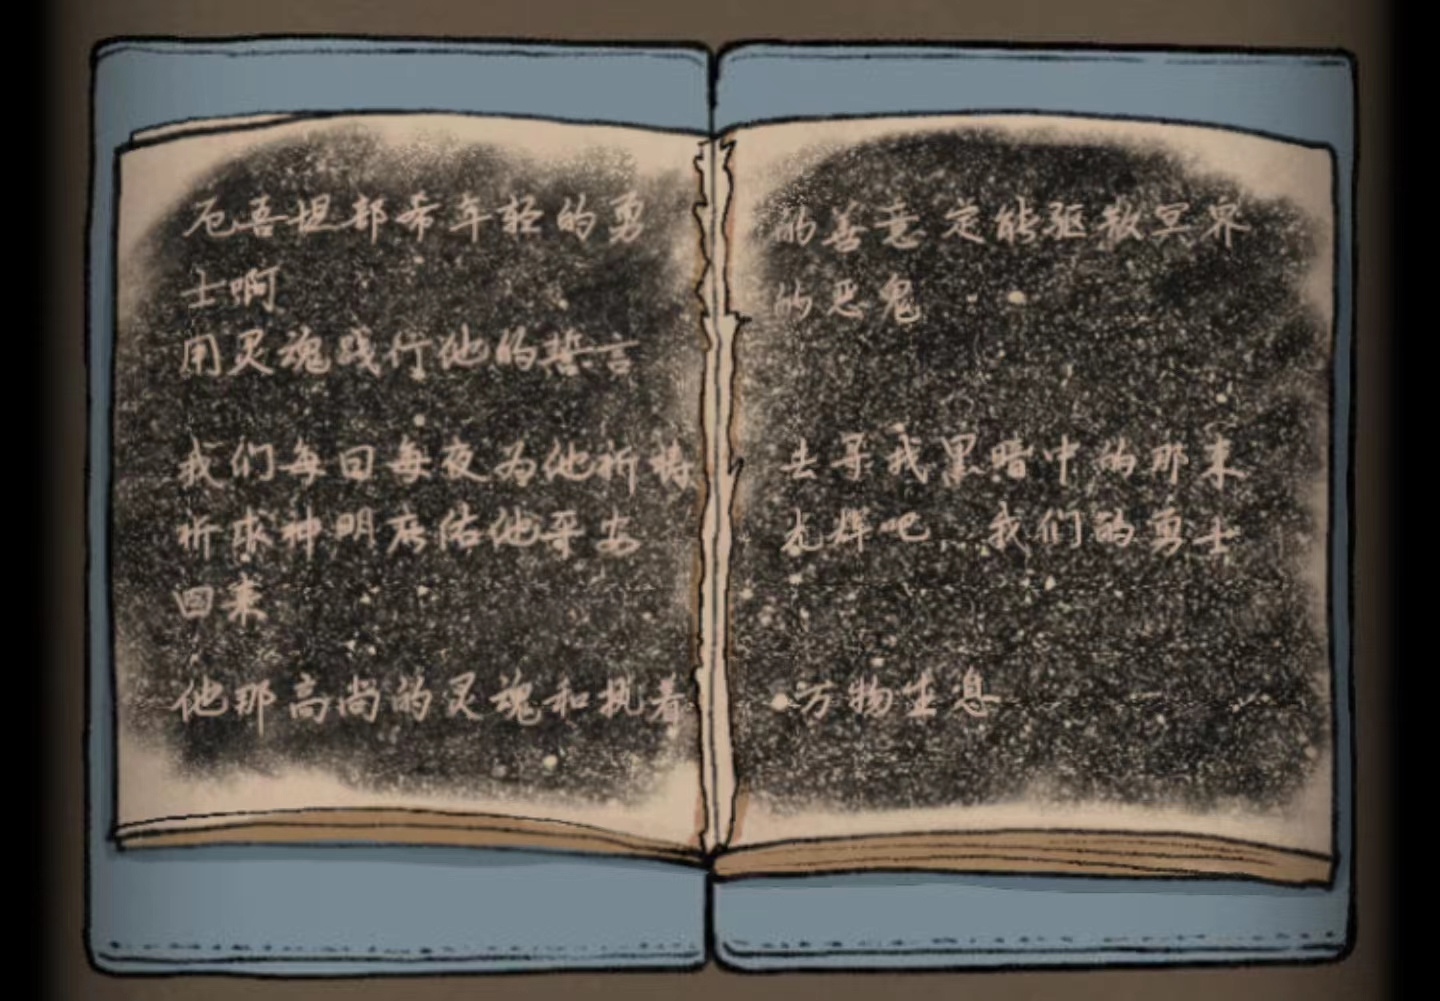 厄喜坦都希年轻的勇
士啊
用灵魂践行他的誓言
我们每日每夜为他祈祷
祈求神明庇佑他平安
回来
他那高尚的灵魂和执着
的善意 定能驱散冥界
的恶鬼
去寻找黑暗中的那束
光辉吧 我们的勇士
万物生息